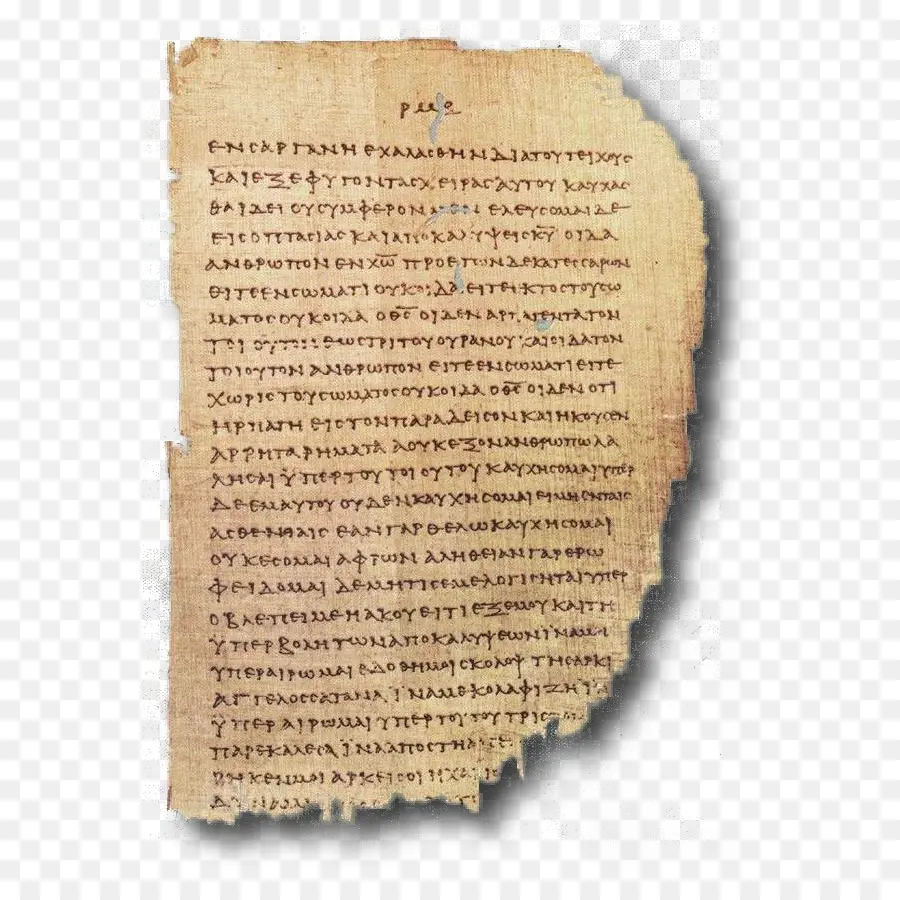 ΕΝϹΑΡΓΑΝΗΕΧΑΛΑϹΘΗΝΔΙΑΤΟΥΤΕΙΧΟΥϹ
ΚΑΙΕΞΕΦΥΓΟΝΤΑϹΧΕΙΡΑϹΑΥΤΟΥΚΑΥΧΑϹ
ΘΑΙΔΕΙΟΥϹΥΜΦΕΡΟΝ ΕΛΕΥϹΟΜΑΙΔΕ
ΕΙϹΟΠΤΑϹΙΑϹΚΑΙΑΠΟΚΑΛΥΨΕΙϹΚ̅Υ̅ΟΙΔΑ
ΑΝΘΡΩΠΟΝΕΝΧ̅Ω̅ΠΡΟΕΤΩΝΔΕΚΑΤΕϹϹΑΡΩΝ
ΕΙΤΕΕΝϹΩΜΑΤΙΟΥΚΟΙΔΑΕΙΤΕΕΚΤΟϹΤΟΥϹΩ
ΜΑΤΟϹΟΥΚΟΙΔΑΟΘ̅Ϲ̅ΟΙΔΕΝΑΡΠΑΓΕΝΤΑΤΟΝ
ΤΟΙΟΥΤΟΝΕΩϹΤΡΙΤΟΥΟΥΡΑΝΟΥΚΑΙΟΙΔΑΤΟΝ
ΤΟΙΟΥΤΟΝΑΝΘΡΩΠΟΝΕΙΤΕΕΝϹΩΜΑΤΙΕΙΤΕ
ΧΩΡΙϹΤΟΥϹΩΜΑΤΟϹΟΥΚΟΙΔΑΟΘ̅Ϲ̅ΟΙΔΕΝΟΤΙ
ΗΡΠΑΓΗΕΙϹΤΟΝΠΑΡΑΔΕΙϹΟΝΚΑΙΗΚΟΥϹΕΝ
ΑΡΡΗΤΑΡΗΜΑΤΑΑΟΥΚΕΞΟΝΑΝΘΡΩΠΩΛΑ
ΛΗϹΑΙΫΠΕΡΤΟΥΤΟΙΟΥΤΟΥΚΑΥΧΗϹΟΜΑΙΥΠΕΡ
ΔΕΕΜΑΥΤΟΥΟΥΔΕΝΚΑΥΧΗϹΟΜΑΙΕΙΜΗΕΝΤΑΙϹ
ΑϹΘΕΝΕΙΑΙϹΕΑΝΓΑΡΘΕΛΩΚΑΥΧΗϹΟΜΑΙ
ΟΥΚΕϹΟΜΑΙΑΦΡΩΝΑΛΗΘΕΙΑΝΓΑΡΕΡΩ
ΦΕΙΔΟΜΑΙΔΕΜΗΤΙϹΕΜΕΛΟΓΙϹΗΤΑΙΥΠΕΡ
ΟΒΛΕΠΕΙΜΕΗΑΚΟΥΕΙΤΙΕΞΕΜΟΥΚΑΙΤΗ
ΫΠΕΡΒΟΛΗΤΩΝΑΠΟΚΑΛΥΨΕΩΝΪΝΑΜΗ
ΥΠΕΡΑΙΡΩΜΑΙΕΔΟΘΗΜΟΙϹΚΟΛΟΨΤΗϹΑΡΚΙ
ΑΓΓΕΛΟϹϹΑΤΑΝΑΪΝΑΜΕΚΟΛΑΦΙΖΗΪΝΑ
ΫΠΕΡΑΙΡΩΜΑΙΥΠΕΡΤΟΥΤΟΥΤΡΙϹ
ΠΑΡΕΚΑΛΕϹΑΪΝΑΑΠΟϹΤΗΑΠ
ΡΗΚΕΝΜΟΙΑΡΚΕΙϹΟΙΗΧΑΡΙϹ